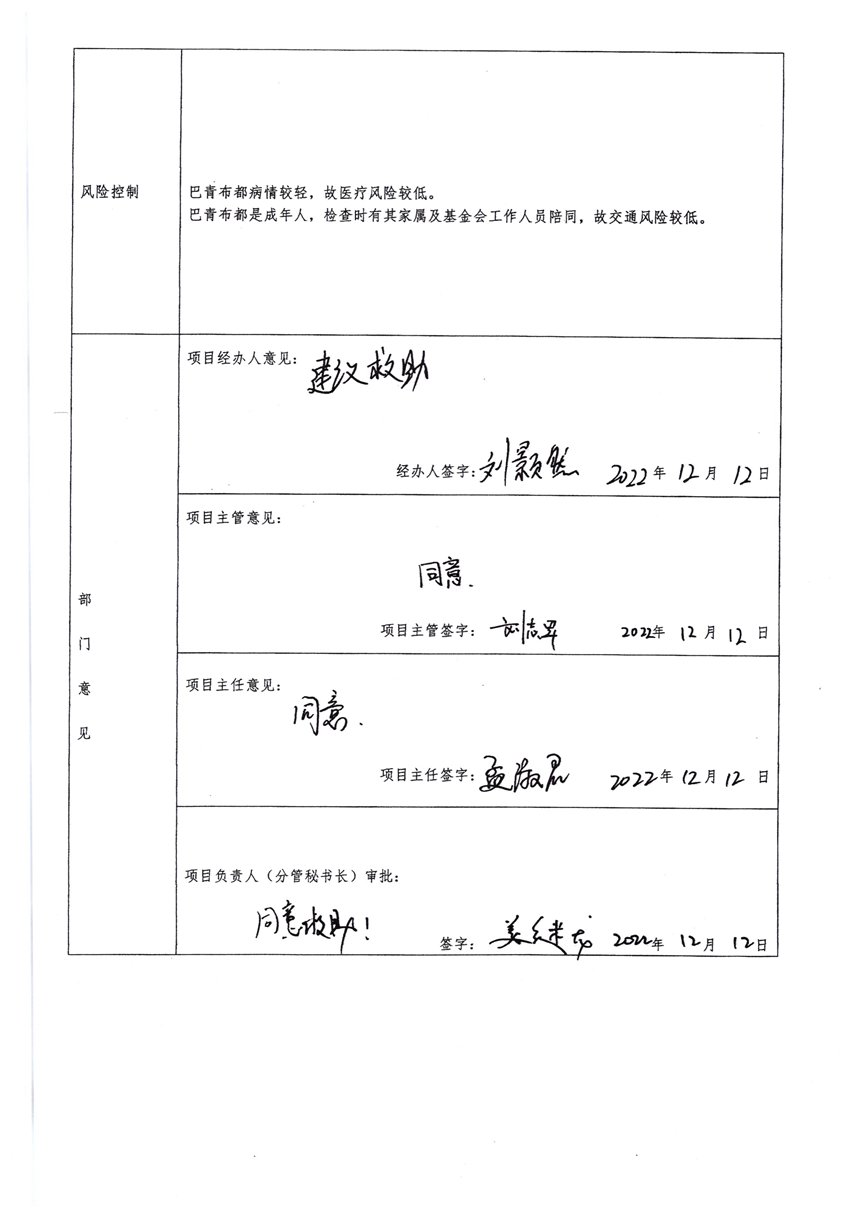 风险控制
巴青布都病情较轻，故医疗风险较低。
巴青布都是成年人，检查时有其家属及基金会工作人员陪同，故交通风险较低。
部门意见
项目经办人意见：
建议救助
经办人签字：刘颢然 2022年12月12日
项目主管意见：
同意.
项目主管签字：刘志 2022年12月12日
项目主任意见：
同意.
项目主任签字：孟淑君 2022年12月12日
项目负责人（分管秘书长）审批：
同意救助！
签字：2022年12月12日